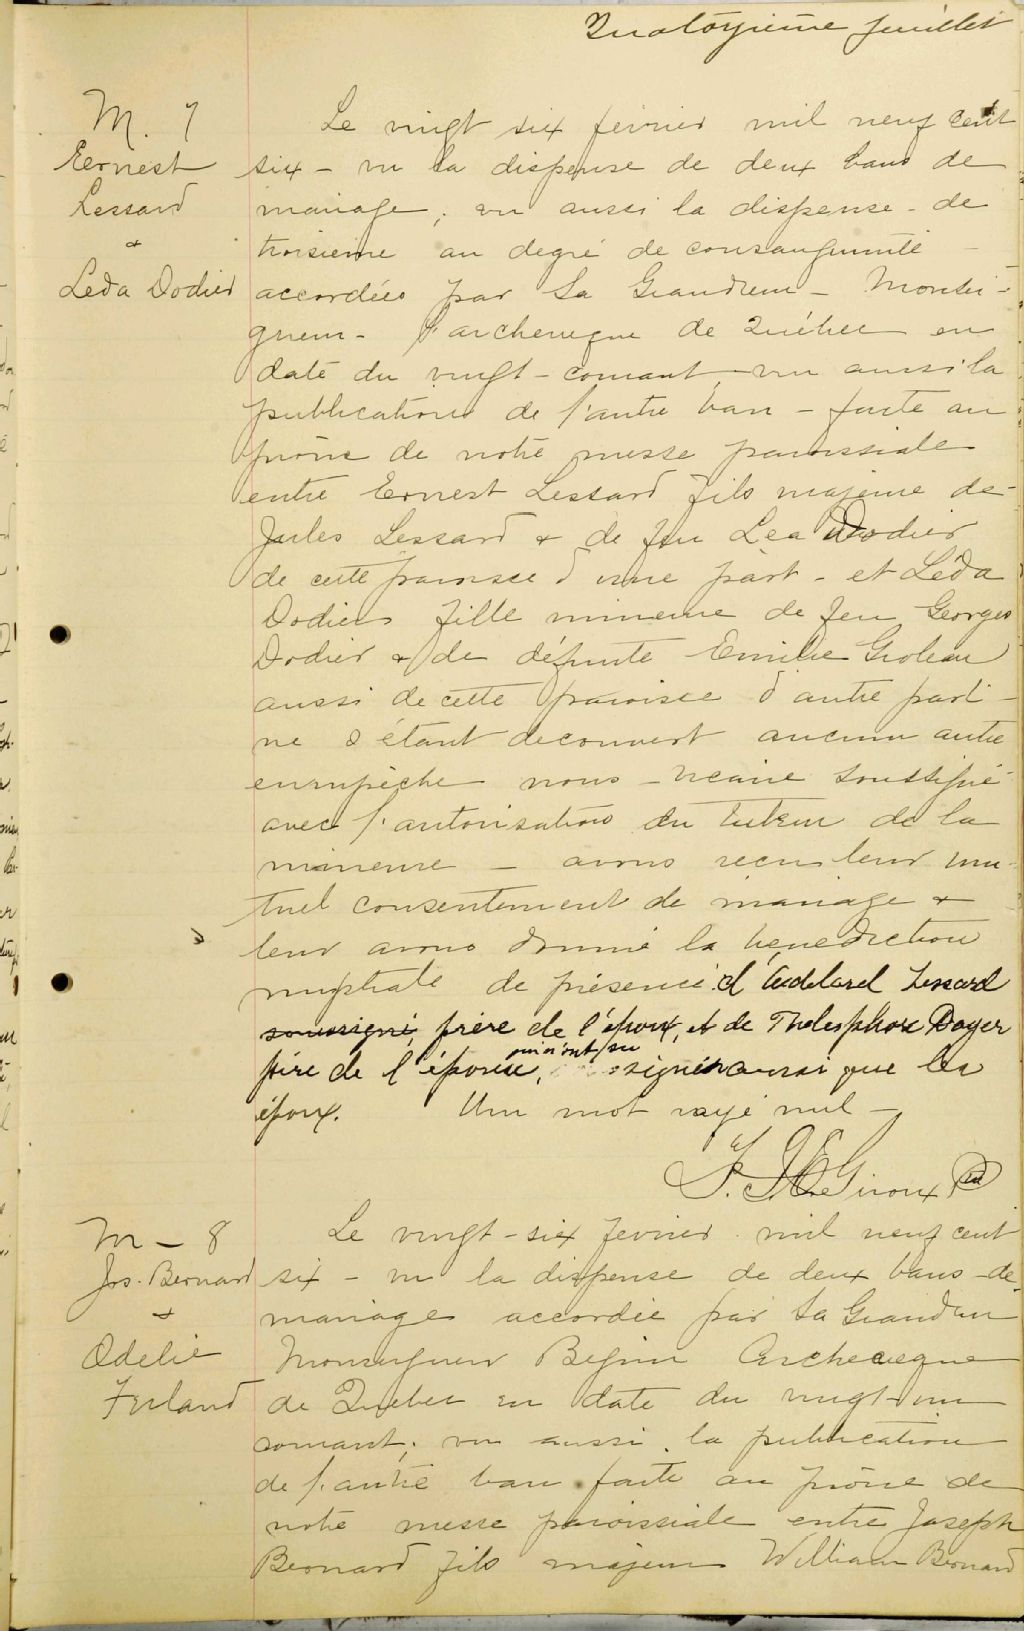 Quatorzième feuillet
M. 7
Eernest
Lessard
&
Leda Dodier
Le vingt six fevrier mil neuf cent
six - vu la dispense de deux bans de
mariage, vu aussi la dispense - de
troisieme au degré de consanguinité -
accordées par Sa Grandeur - Monsei-
gneur - l'archeveque de Québec en
date du vingt - courant, vu aussi la
publication de l'autre ban - faite au
prône de notre messe paroissiale
entre Ernest Lessard fils majeur de
Jules Lessard & de feu Lea Dodier
de cette paroisse d'une part - et Léda
Dodier fille mineure de feu Georges
Dodier & de défunte Emilie Groleau
aussi de cette paroisse d'autre part -
ne s'étant decouvert aucun autre
empêche nous - vicaire soussigné
avec l'autorisation du tuteur de la
mineure - avons recu leur mu-
tuel consentement de mariage &
leur avons donné la benediction
nuptiale de présence d'Addelard Lessard
soussigné, frère de l'époux, et de Thelesphore Doyer
père de l'épouse, qui n'ont su signer ainsi que les
époux. Un mot rayé nul -
F. J. E. Giroux Ptr
M - 8
Jos. Bernard
&
Odelie
Ferland
Le vingt - six fevrier mil neuf cent
six - vu la dispense de deux bans - de
mariage accordée par Sa Grandeur
Monseigneur Begin Archeveque
de Quebec en date du vingt-un
courant; vu aussi la publication
de l'autre ban faite au prône de
notre messe paroissiale entre Joseph
Bernard fils majeur William Bernard